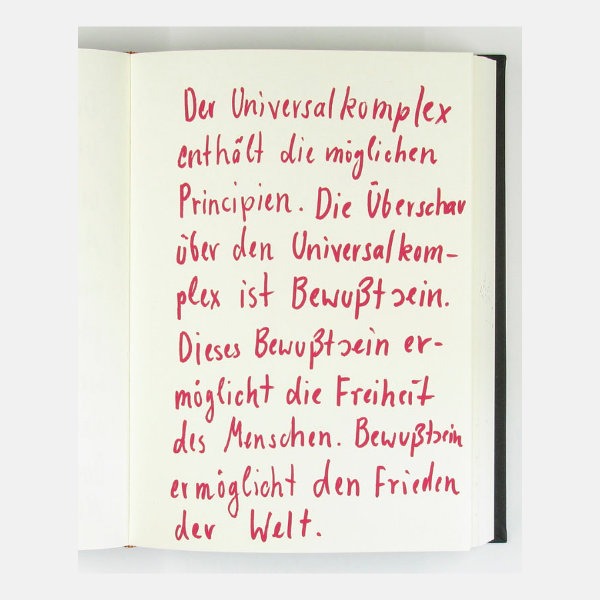 Der Universalkomplex
enthält die möglichen
Principien. Die Überschau
über den Universalkom-
plex ist Bewußtsein.
Dieses Bewußtsein er-
möglicht die Freiheit
des Menschen. Bewußtsein
ermöglicht den Frieden
der Welt.